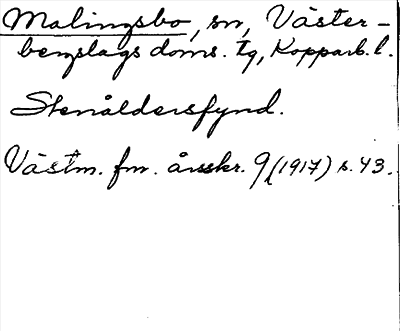 Malingsbo, sn, Väster-
bergslags doms. tg, Kopparb. l.
Stenåldersfynd.
Västm. fm. årsskr. 9 (1917) s. 43.